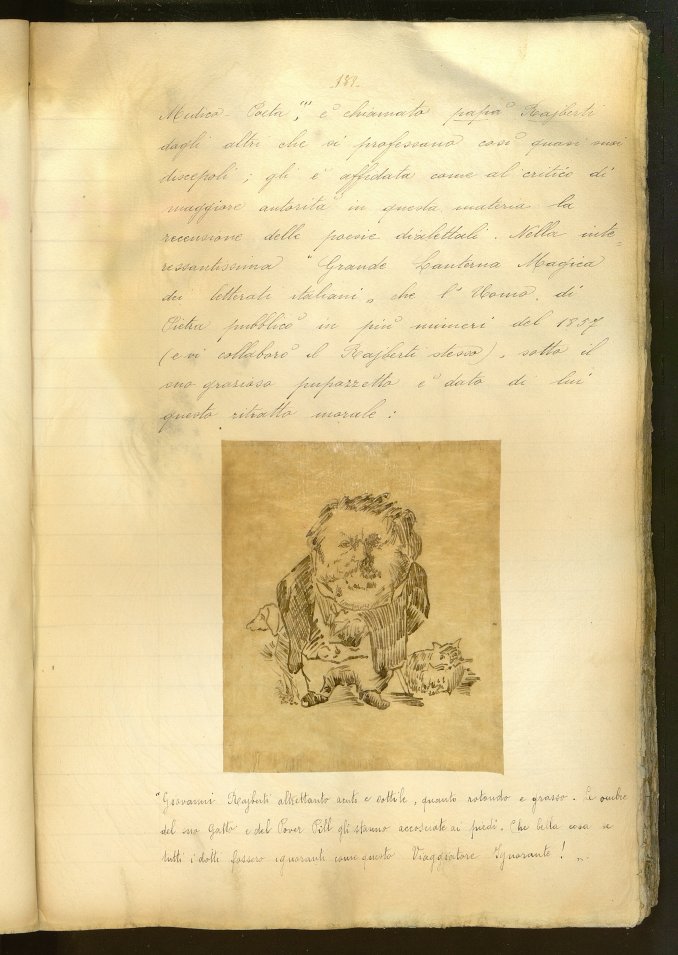 Medico-Poeta", è chiamato papà Rajberti
dagli altri che si professano così quasi suoi
discepoli; gli è affidata come al critico di
maggiore autorità in questa materia la
recensione delle poesie dialettali. Nella inte-
ressantissima "Grande Lanterna Magica
dei letterati italiani" che l'Uomo di
Pietra pubblicò in più numeri del 1857
(e vi collaborò il Rajberti stesso), sotto il
suo grazioso pupazzetto è dato di lui
questo ritratto morale:
"Giovanni Rajberti altrettanto acuto e sottile, quanto rotondo e grasso. Le ombre
del suo Gatto e del Pover Pill gli stanno accosciate ai piedi. Che bella cosa se
tutti i dotti fossero ignoranti come questo Viaggiatore Ignorante! "